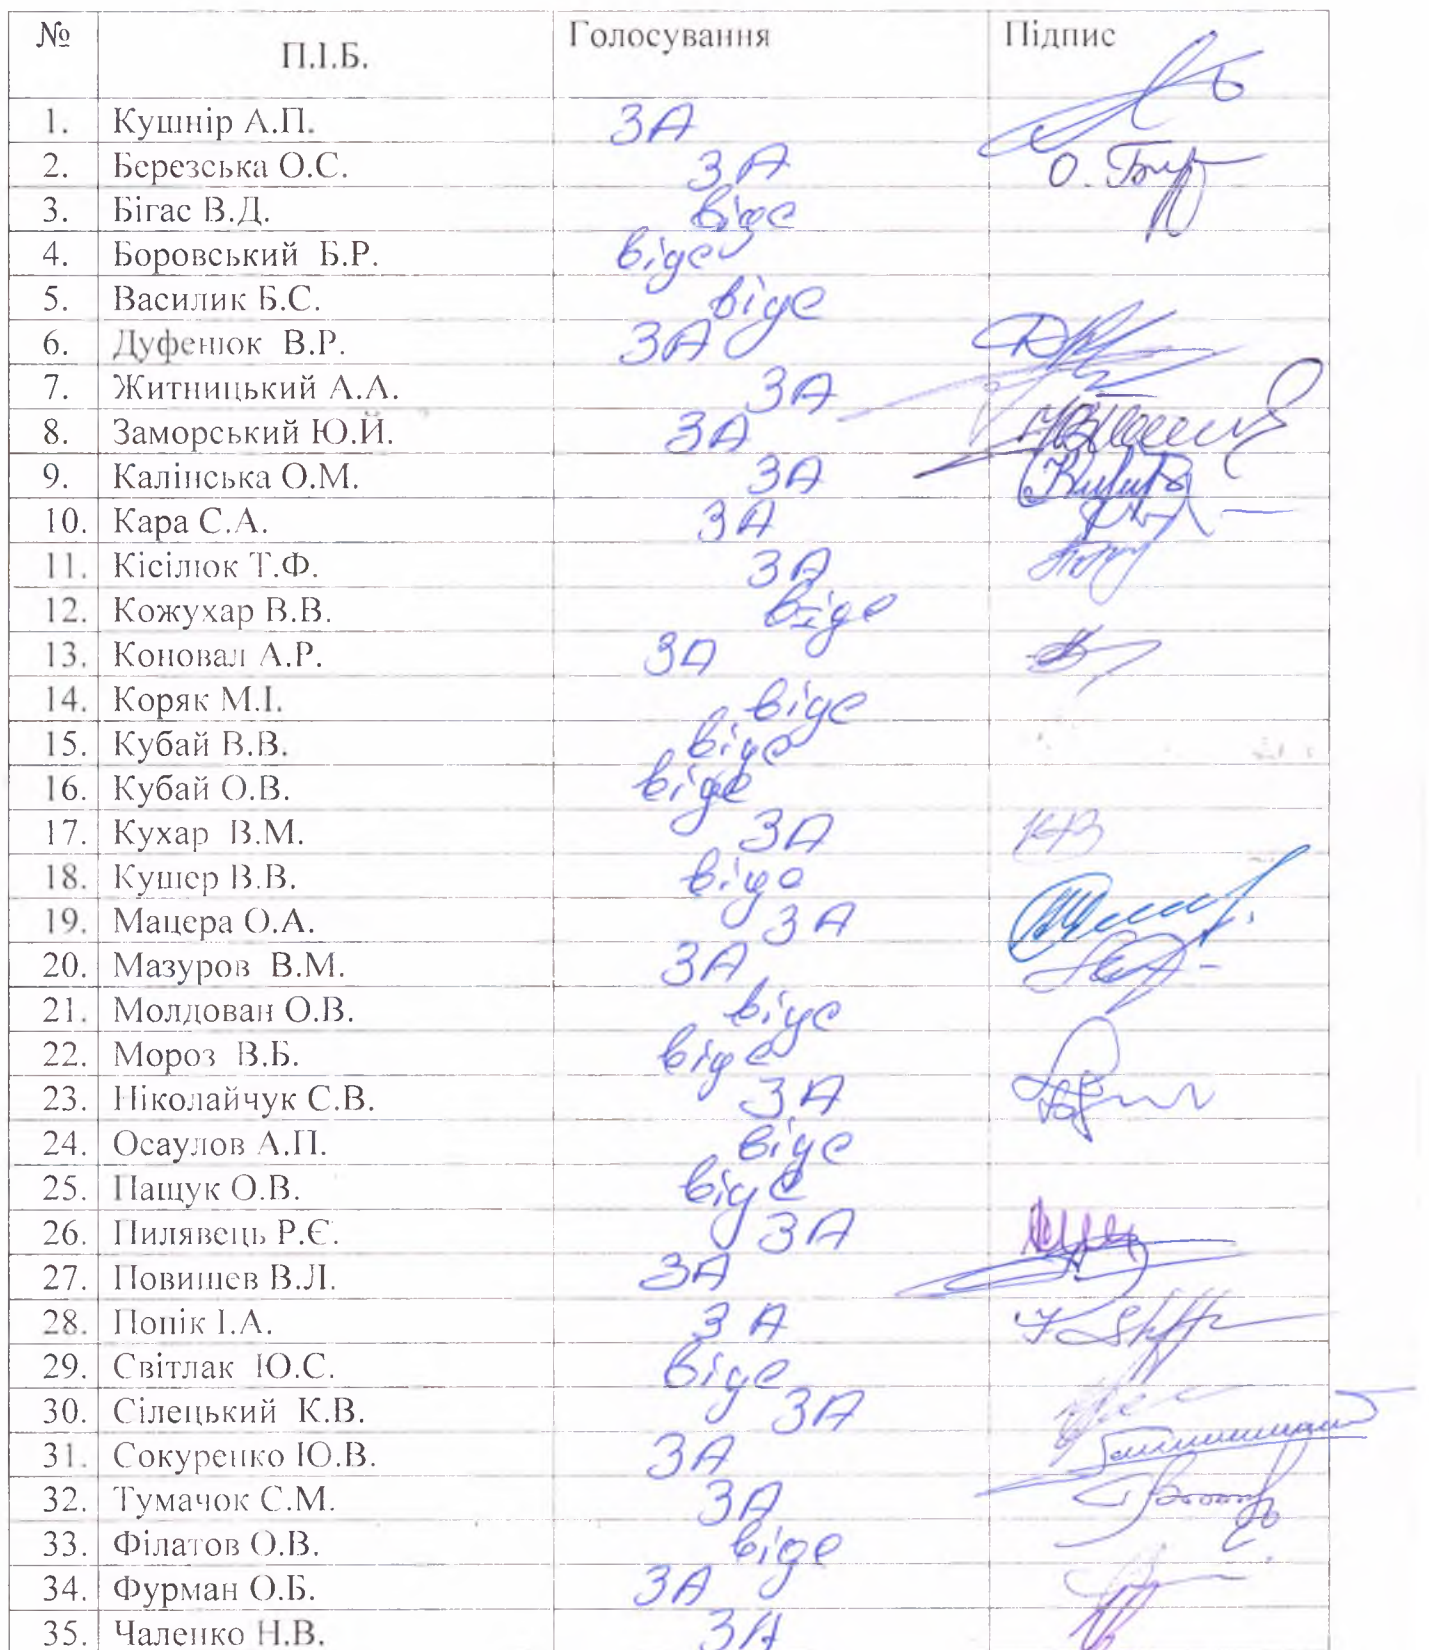 № П.І.Б. Голосування Підпис
1. Кушнір А.П. ЗА
2. Березська О.С. ЗА
3. Бігас В.Д. відс
4. Боровський Б.Р. відс
5. Василик Б.С. відс
6. Дуфенюк В.Р. ЗА
7. Житницький А.А. ЗА
8. Заморський Ю.Й. ЗА
9. Калінська О.М. ЗА
10. Кара С.А. ЗА
11. Кісілюк Т.Ф. ЗА
12. Кожухар В.В. відс
13. Коновал А.Р. ЗА
14. Коряк М.І. відс
15. Кубай В.В. відс
16. Кубай О.В. відс
17. Кухар В.М. ЗА
18. Кушер В.В. відс
19. Мацера О.А. ЗА
20. Мазуров В.М. ЗА
21. Молдован О.В. відс
22. Мороз В.Б. відс
23. Ніколайчук С.В. ЗА
24. Осаулов А.П. відс
25. Пащук О.В. відс
26. Пилявець Р.Є. ЗА
27. Повишев В.Л. ЗА
28. Попік І.А. ЗА
29. Світлак Ю.С. відс
30. Сілецький К.В. ЗА
31. Сокуренко Ю.В. ЗА
32. Тумачок С.М. ЗА
33. Філатов О.В. відс
34. Фурман О.Б. ЗА
35. Чаленко Н.В. ЗА